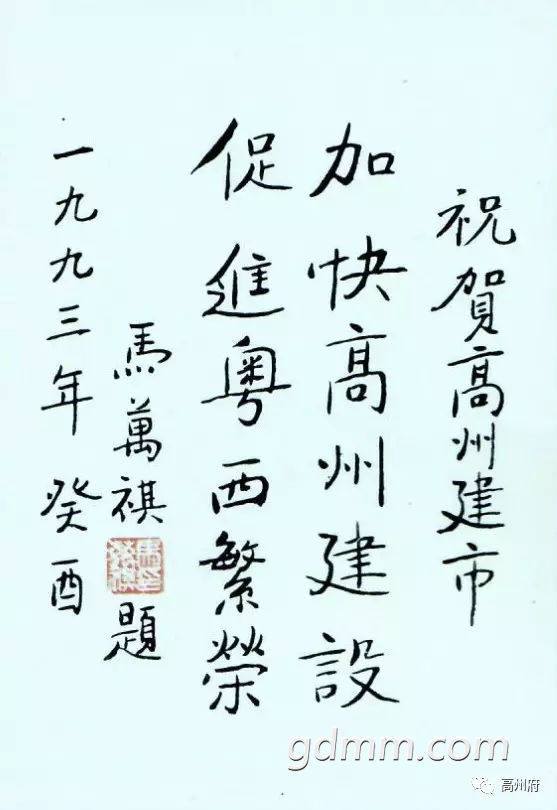 祝賀高州建市
加快高州建設
促進粤西繁榮
馬萬祺題
一九九三年癸酉
gdmm.com
高州府